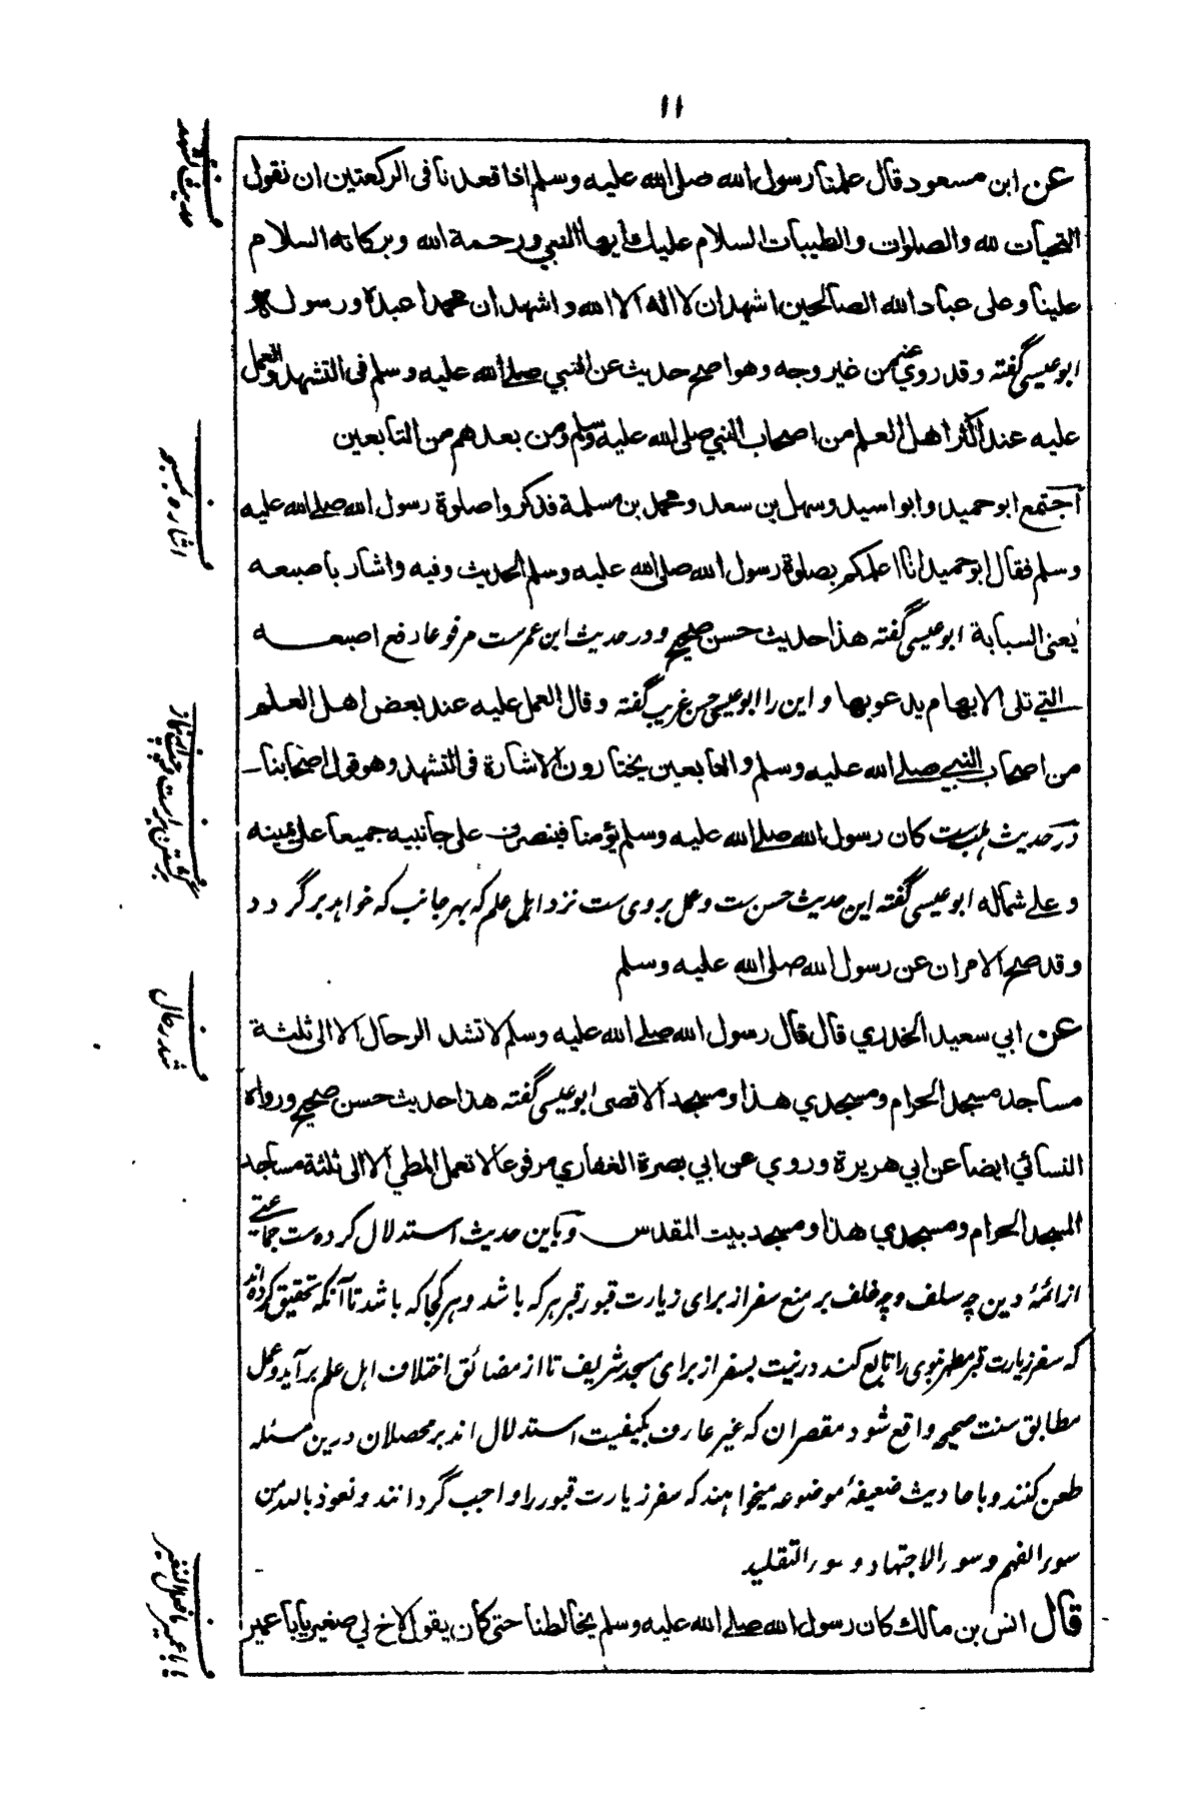 ۱۱
عن ابن مسعود قال علمنا رسول الله صلى الله عليه وسلم اذا قعدنا فى الركعتين ان نقول
التحيات لله والصلوات والطيبات السلام عليك ايها النبي ورحمة الله وبركاته السلام
علينا وعلى عباد الله الصالحين اشهد ان لا اله الا الله واشهد ان محمدا عبده ورسوله
ابو عيسى گفته وقد روي عنه من غير وجه وهو اصح حديث عن النبي صلى الله عليه وسلم فى التشهد والعمل
عليه عند اكثر اهل العلم من اصحاب النبي صلى الله عليه وسلم ومن بعدهم من التابعين
اجتمع ابو حميد وابو اسيد وسهل بن سعد ومحمد بن مسلمة فذكروا صلوة رسول الله صلى الله عليه
وسلم فقال ابو حميد انا اعلمكم بصلوة رسول الله صلى الله عليه وسلم الحديث وفيه واشار باصبعه
يعنى السبابة ابو عيسى گفته هذا حديث حسن صحيح ودر حديث ابن عمرست مرفوعا رفع اصبعه
التي تلى الابهام يدعو بها واين را ابو عيسى حسن غريب گفته وقال العمل عليه عند بعض اهل العلم
من اصحاب النبي صلى الله عليه وسلم والتابعين يختارون الاشارة فى التشهد وهو قول اصحابنا
در حديث هلب ست كان رسول الله صلى الله عليه وسلم يؤمنا فينصرف على جانبيه جميعا على يمينه
وعلى شماله ابو عيسى گفته اين حديث حسن ست وعمل بروى ست نزد اهل علم كه بهر جانب كه خواهد برگردد
وقد صح الامران عن رسول الله صلى الله عليه وسلم
عن ابي سعيد الخدري قال قال رسول الله صلى الله عليه وسلم لا تشد الرحال الا الى ثلثة
مساجد مسجد الحرام ومسجدي هذا ومسجد الاقصى ابو عيسى گفته هذا حديث حسن صحيح ورواه
النسائي ايضا عن ابي هريرة وروي عن ابي بصرة الغفاري مرفوعا لا تعمل المطي الا الى ثلثة مساجد
المسجد الحرام ومسجدي هذا ومسجد بيت المقدس وباين حديث استدلال كرده ست جماعتے
از ائمۂ دين چه سلف وچه خلف بر منع سفر از براى زيارت قبور قبر هر كه باشد وهر كجا كه باشد تا آنكه تحقيق كرده اند
كه سفر زيارت قبر مطهر نبوى را تابع كند در نيت بسفر از براى مسجد شريف تا از مضائق اختلاف اهل علم برآيد وعمل
مطابق سنت صحيحه واقع شود مقصران كه غير عارف بكيفيت استدلال اند بر محصلان درين مسئله
طعن كنند وباحاديث ضعيفۂ موضوعه ميخواهند كه سفر زيارت قبور را واجب گردانند ونعوذ بالله من
سوء الفهم وسوء الاجتهاد وسوء التقليد
قال انس بن مالك كان رسول الله صلى الله عليه وسلم يخالطنا حتى كان يقول لاخ لي صغير يا با عمير
اشاره بمسبحه
شد رحال
يا با عمير ما فعل النغير